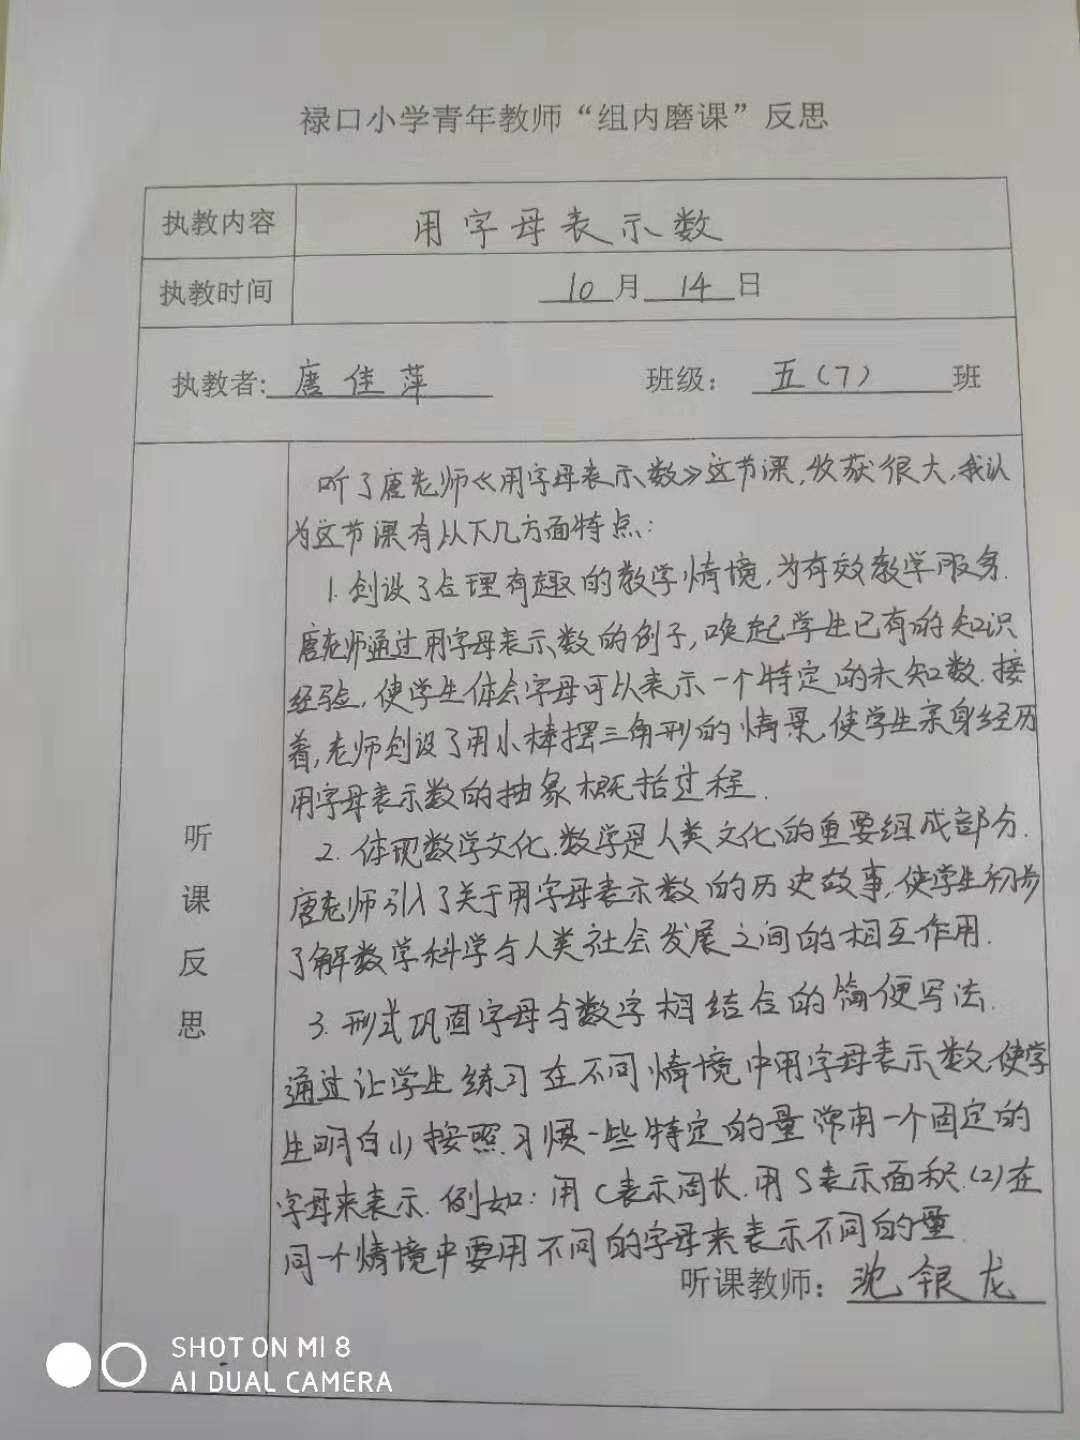 禄口小学青年教师“组内磨课”反思
执教内容 用字母表示数
执教时间 10月14日
执教者:唐佳萍 班级：五（7）班
听课反思
听了唐老师《用字母表示数》这节课,收获很大,我认
为这节课有以下几方面特点:
1.创设了合理有趣的教学情境,为有效教学服务.
唐老师通过用字母表示数的例子,唤起学生已有的知识
经验,使学生体会字母可以表示一个特定的未知数.接
着,老师创设了用小棒摆三角形的情景,使学生亲身经历
用字母表示数的抽象概括过程.
2.体现数学文化.数学是人类文化的重要组成部分.
唐老师引入了关于用字母表示数的历史故事,使学生初步
了解数学科学与人类社会发展之间的相互作用.
3.形式巩固字母与数字相结合的简便写法.
通过让学生练习在不同情境中用字母表示数,使学
生明白(1)按照习惯一些特定的量常用一个固定的
字母来表示.例如:用C表示周长.用S表示面积.(2)在
同一个情境中要用不同的字母来表示不同的量.
听课教师：沈银龙
SHOT ON MI 8
AI DUAL CAMERA